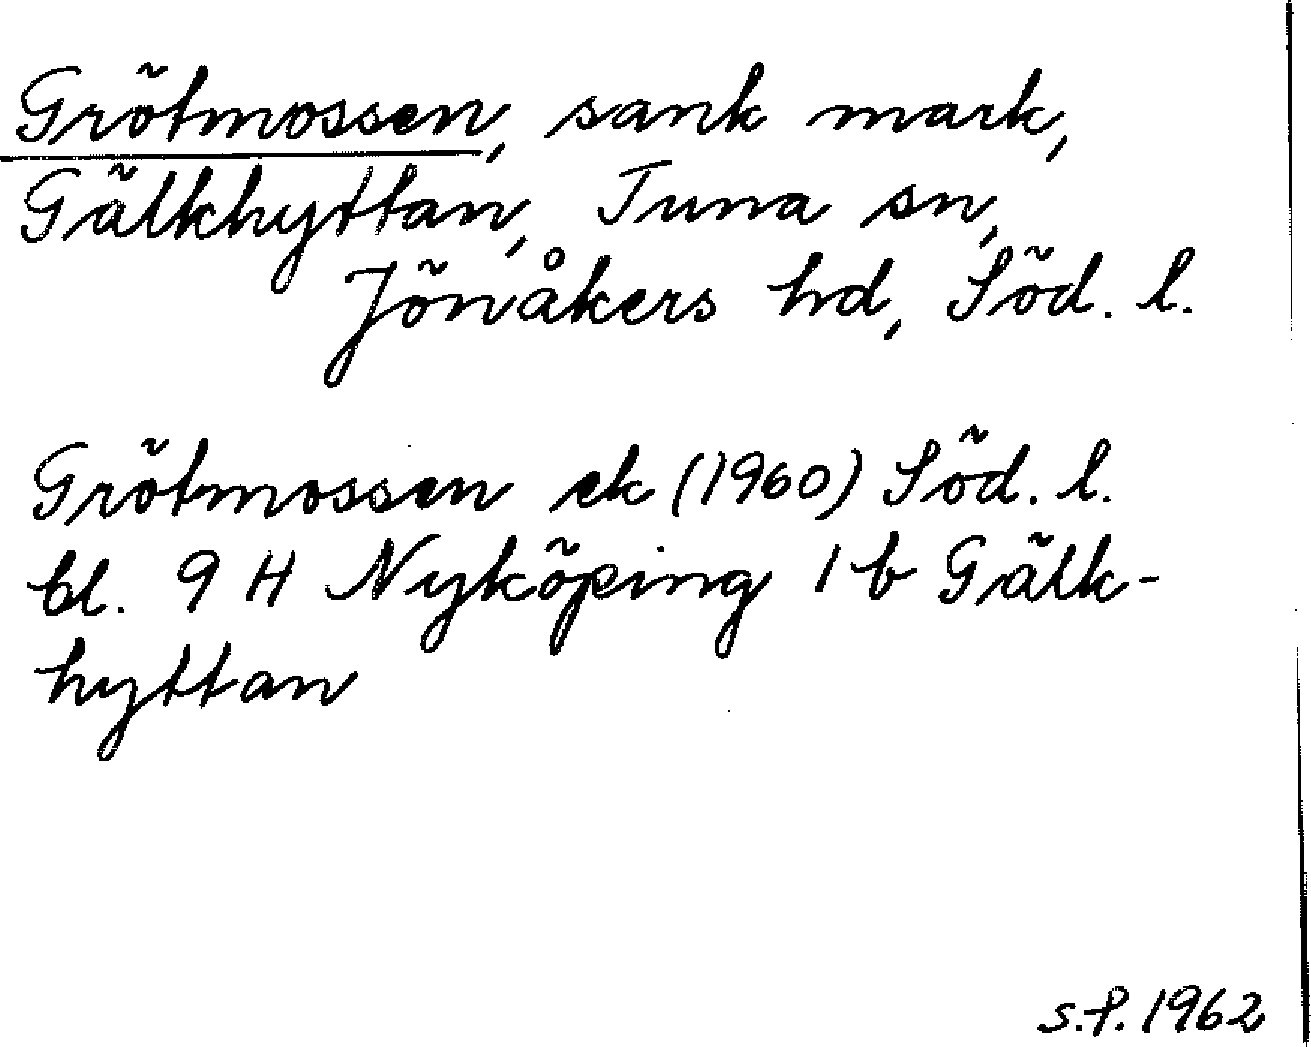 Grötmossen, sank mark,
Gälkhyttan, Tuna sn,
Jönåkers hd, Söd. l.
Grötmossen ek (1960) Söd. l.
bl. 9 H Nyköping 1 b Gälk-
hyttan
S.P. 1962